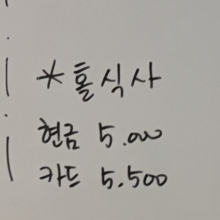 *홀식사
현금 5.000
카드 5.500